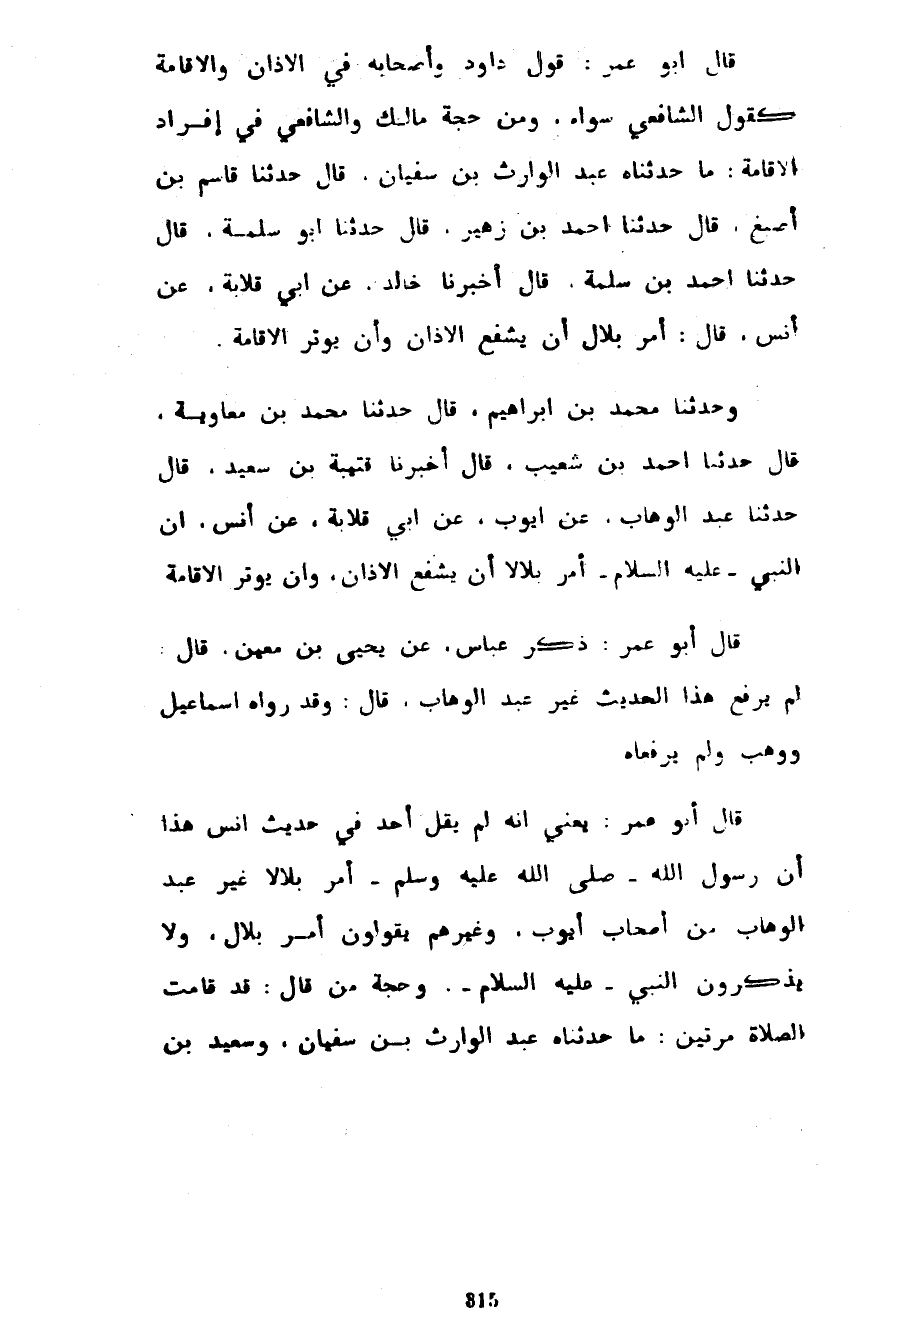 قال ابو عمر : قول داود وأصحابه في الاذان والاقامة
كقول الشافعي سواء . ومن حجة مالك والشافعي في إفراد
الاقامة : ما حدثناه عبد الوارث بن سفيان . قال حدثنا قاسم بن
أصبغ ، قال حدثنا احمد بن زهير . قال حدثنا ابو سلمة ، قال
حدثنا احمد بن سلمة . قال أخبرنا خالد . عن ابي قلابة ، عن
أنس ، قال : أمر بلال أن يشفع الاذان وأن يوتر الاقامة .
وحدثنا محمد بن ابراهيم ، قال حدثنا محمد بن معاوية ،
قال حدثنا احمد بن شعيب ، قال أخبرنا قتيبة بن سعيد . قال
حدثنا عبد الوهاب . عن ايوب ، عن ابي قلابة ، عن أنس ، ان
النبي - عليه السلام - أمر بلالا أن يشفع الاذان ، وان يوتر الاقامة
قال أبو عمر : ذكر عباس ، عن يحيى بن معين . قال :
لم يرفع هذا الحديث غير عبد الوهاب ، قال : وقد رواه اسماعيل
ووهب ولم يرفعاه
قال أبو عمر : يعني انه لم يقل أحد في حديث انس هذا
أن رسول الله - صلى الله عليه وسلم - أمر بلالا غير عبد
الوهاب من أصحاب أيوب ، وغيرهم يقولون أمر بلال ، ولا
يذكرون النبي - عليه السلام - . وحجة من قال : قد قامت
الصلاة مرتين : ما حدثناه عبد الوارث بن سفيان ، وسعيد بن
315